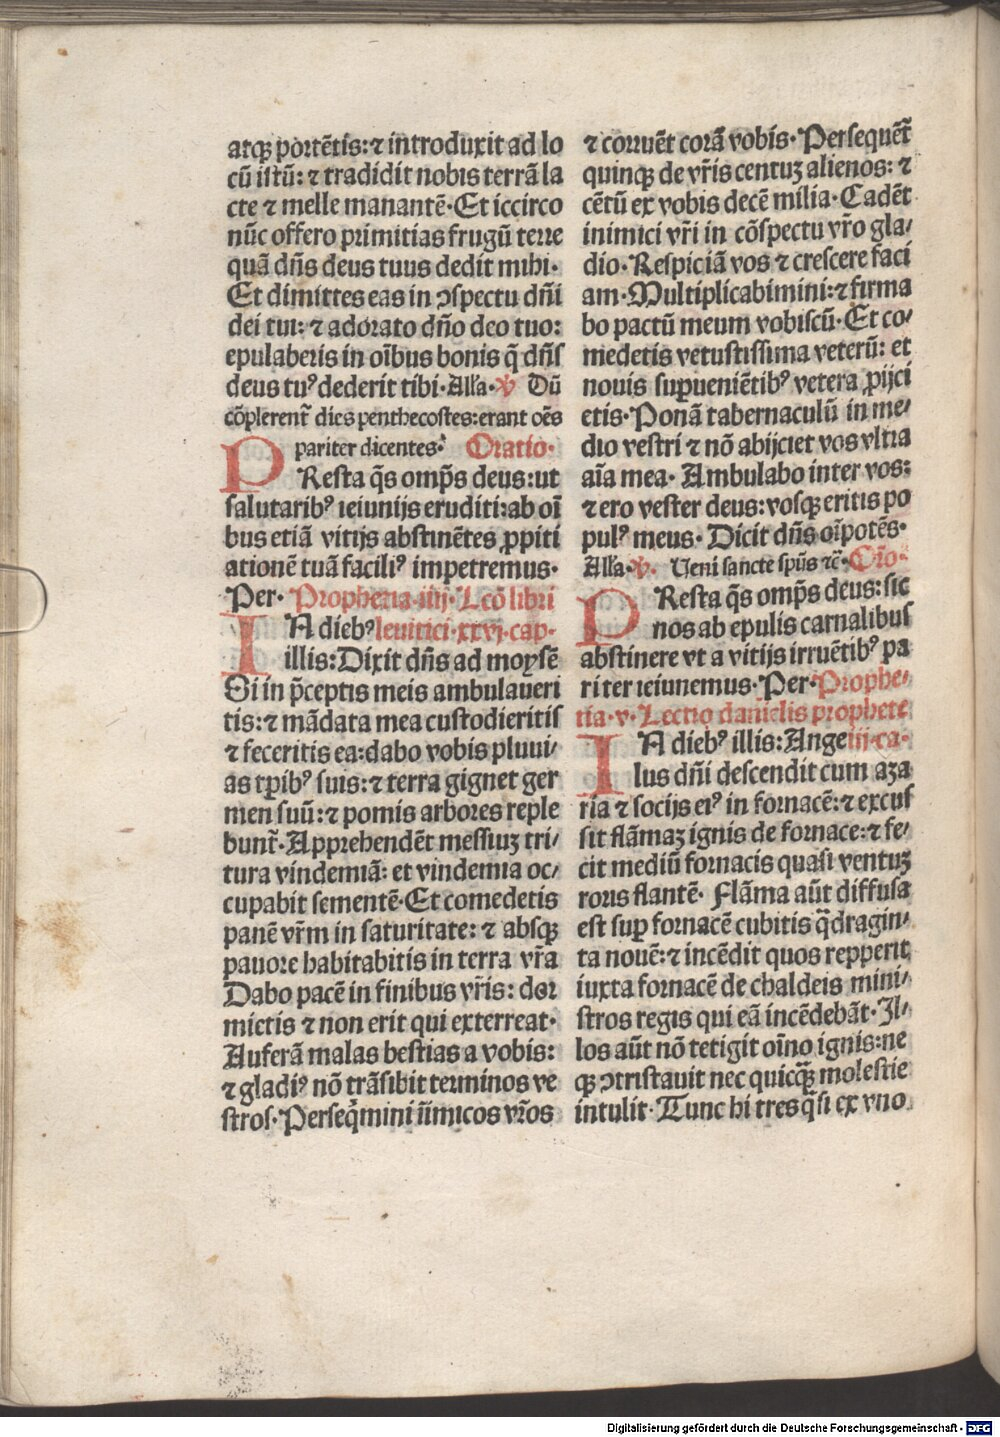 atqꝫ portētis: ⁊ introduxit ad lo
cū istū: ⁊ tradidit nobis terrā la
cte ⁊ melle manantē. Et iccirco
nūc offero primitias frugū terre
quā dn̄s deus tuus dedit mihi.
Et dimittes eas in ↄspectu dn̄i
dei tui: ⁊ adorato dn̄o deo tuo:
epulaberis in oībus bonis q̄ dn̄s
deus tuꝰ dederit tibi. Alla. ℣ Dū
cōplerent̄ dies penthecostes: erant oēs
pariter dicentes. Oratio.
PResta q̄s omp̄s deus: ut
salutaribꝰ ieiunijs eruditi: ab oī
bus etiā vitijs abstinētes ꝓpiti
ationē tuā faciliꝰ impetremus.
Per. Prophetia iiij. Lcō libri
IN diebꝰ leuitici.xxvj.cap.
illis: Dixit dn̄s ad moysē
Si in p̄ceptis meis ambulaueri
tis: ⁊ mādata mea custodieritis
⁊ feceritis ea: dabo vobis pluui/
as tꝑibꝰ suis: ⁊ terra gignet ger
men suū: ⁊ pomis arbores reple
bunt̄. Apprehendēt messiuꝫ tri/
tura vindemiā: et vindemia oc/
cupabit sementē. Et comedetis
panē vr̄m in saturitate: ⁊ absqꝫ
pauore habitabitis in terra vr̄a
Dabo pacē in finibus vr̄is: dor
mietis ⁊ non erit qui exterreat.
Auferā malas bestias a vobis:
⁊ gladiꝰ nō trāsibit terminos ve
stros. Perseq̄mini iīmicos vr̄os
⁊ corruēt corā vobis. Persequēt̄
quinqꝫ de vr̄is centuꝫ alienos: ⁊
cētū ex vobis decē milia. Cadēt
inimici vr̄i in cōspectu vr̄o gla/
dio. Respiciā vos ⁊ crescere faci
am. Multiplicabimini: ⁊ firma
bo pactū meum vobiscū. Et co/
medetis vetustissima veterū: et
nouis suꝑueniētibꝰ vetera ꝓijci
etis. Ponā tabernaculū in me/
dio vestri ⁊ nō abijciet vos vltra
aīa mea. Ambulabo inter vos:
⁊ ero vester deus: vosqꝫ eritis po
pulꝰ meus. Dicit dn̄s oīpotēs.
Alla. ℣. Ueni sancte sp̄us ⁊c̄. Orō.
PResta q̄s omp̄s deus: sic
nos ab epulis carnalibus
abstinere vt a vitijs irruētibꝰ pa
riter ieiunemus. Per. Prophe/
tia.v. Lectio danielis prophete
IN diebꝰ illis: Ange iij.ca.
lus dn̄i descendit cum aza
ria ⁊ socijs eiꝰ in fornacē: ⁊ excus
sit flāmaꝫ ignis de fornace: ⁊ fe/
cit mediū fornacis quasi ventuꝫ
roris flantē. Flāma aūt diffusa
est suꝑ fornacē cubitis q̄dragin/
ta nouē: ⁊ incēdit quos repperit
iuxta fornacē de chaldeis mini/
stros regis qui eā incēdebāt. Il/
los aūt nō tetigit oīno ignis: ne
qꝫ ↄtristauit nec quicq̄ꝫ molestie
intulit. Tunc hi tres q̄si ex vno
Digitalisierung gefördert durch die Deutsche Forschungsgemeinschaft - DFG